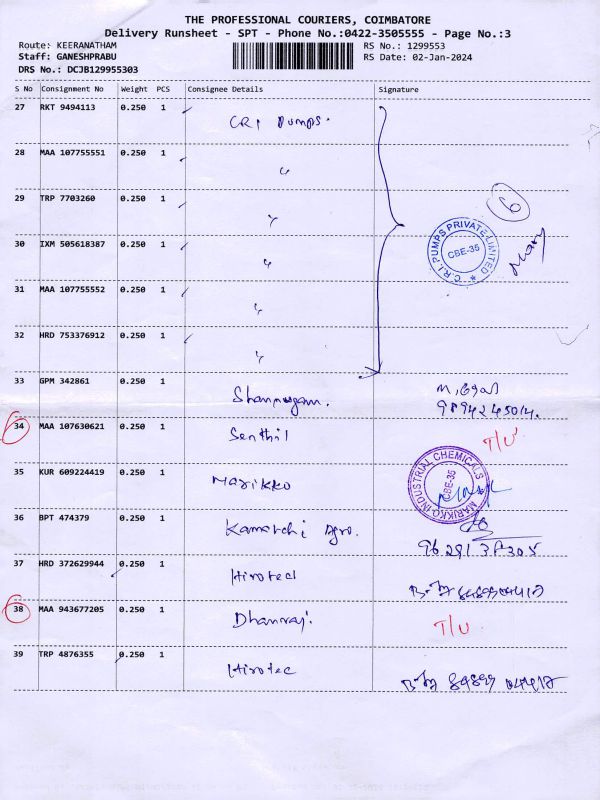 THE PROFESSIONAL COURIERS, COIMBATORE
Delivery Runsheet - SPT - Phone No.:0422-3505555 - Page No.:3
Route: KEERANATHAM RS No.: 1299553
Staff: GANESHPRABU RS Date: 02-Jan-2024
DRS No.: DCJB129955303
S No Consignment No Weight PCS Consignee Details Signature
27 RKT 9494113 0.250 1 CRI Pumps.
28 MAA 107755551 0.250 1 "
29 TRP 7703260 0.250 1 "
6
30 IXM 505618387 0.250 1 "
C.R.I. PUMPS PRIVATE LIMITED
CBE-35
31 MAA 107755552 0.250 1 "
32 HRD 753376912 0.250 1 "
33 GPM 342861 0.250 1 Shanmugam.
9894245014.
34 MAA 107630621 0.250 1 Senthil T/U
35 KUR 609224419 0.250 1 Marikko
MARIKKO INDUSTRIAL CHEMICALS
CBE-35
36 BPT 474379 0.250 1 Kamatchi Agro.
37 HRD 372629944 0.250 1 Hirotec
38 MAA 943677205 0.250 1 Dhanraj. T/U
39 TRP 4876355 0.250 1 Hirotec